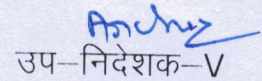 उप–निदेशक–V